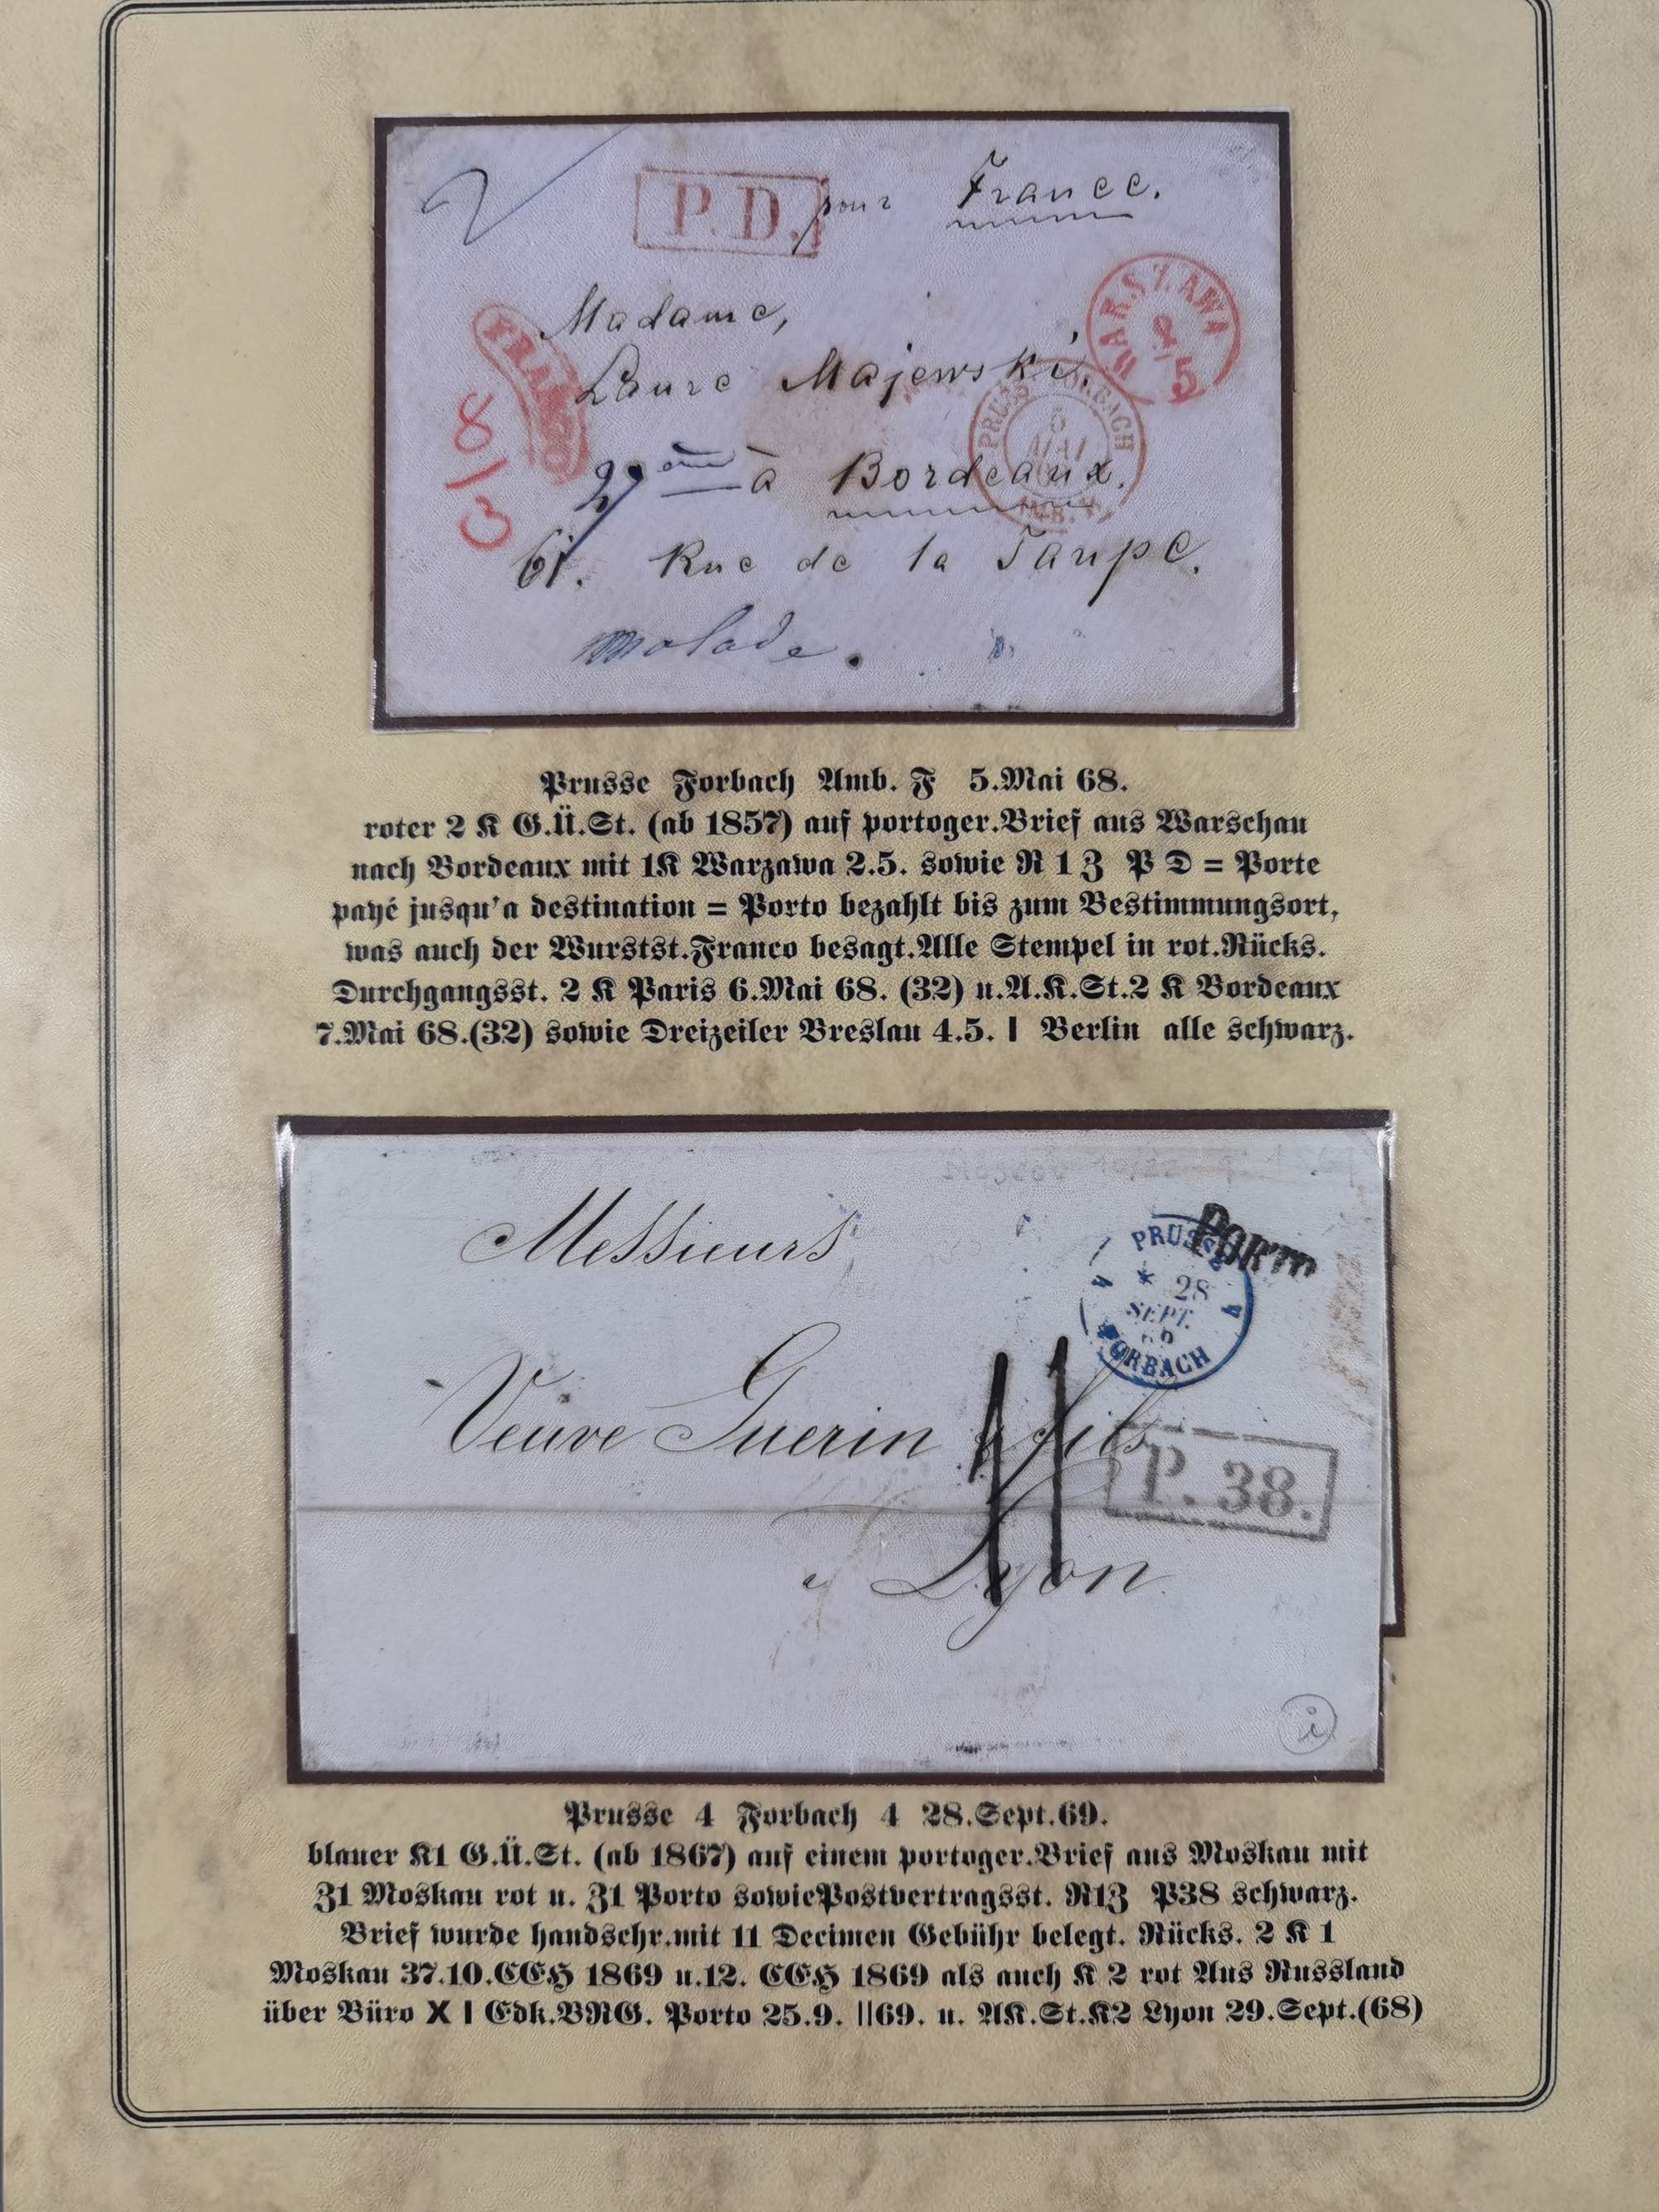 P.D. pour France.
WARSZAWA
2/5
Madame,
FRANCO
Laure Majewski,
PRUSSE FORBACH
5 MAI
AMB.
3/8
à Bordeaux.
61. Rue de la Taupe.
malade.
Prusse Forbach Amb. F 5.Mai 68.
roter 2 K G.Ü.St. (ab 1857) auf portoger.Brief aus Warschau
nach Bordeaux mit 1K Warzawa 2.5. sowie R 1 Z P D = Porte
payé jusqu'a destination = Porto bezahlt bis zum Bestimmungsort,
was auch der Wurstst.Franco besagt.Alle Stempel in rot.Rücks.
Durchgangsst. 2 K Paris 6.Mai 68. (32) u.A.K.St.2 K Bordeaux
7.Mai 68.(32) sowie Dreizeiler Breslau 4.5. I Berlin alle schwarz.
Messieurs
PORTO
PRUSSE
4 * 28 4
SEPT.
FORBACH
Veuve Guerin & fils
11
P. 38.
a Lyon.
i
Prusse 4 Forbach 4 28.Sept.69.
blauer K1 G.Ü.St. (ab 1867) auf einem portoger.Brief aus Moskau mit
Z1 Moskau rot u. Z1 Porto sowiePostvertragsst. R1Z P38 schwarz.
Brief wurde handschr.mit 11 Decimen Gebühr belegt. Rücks. 2 K 1
Moskau 37.10.CCH 1869 u.12. CCH 1869 als auch K 2 rot Aus Russland
über Büro X I Edk.BRG. Porto 25.9. ||69. u. AK.St.K2 Lyon 29.Sept.(68)